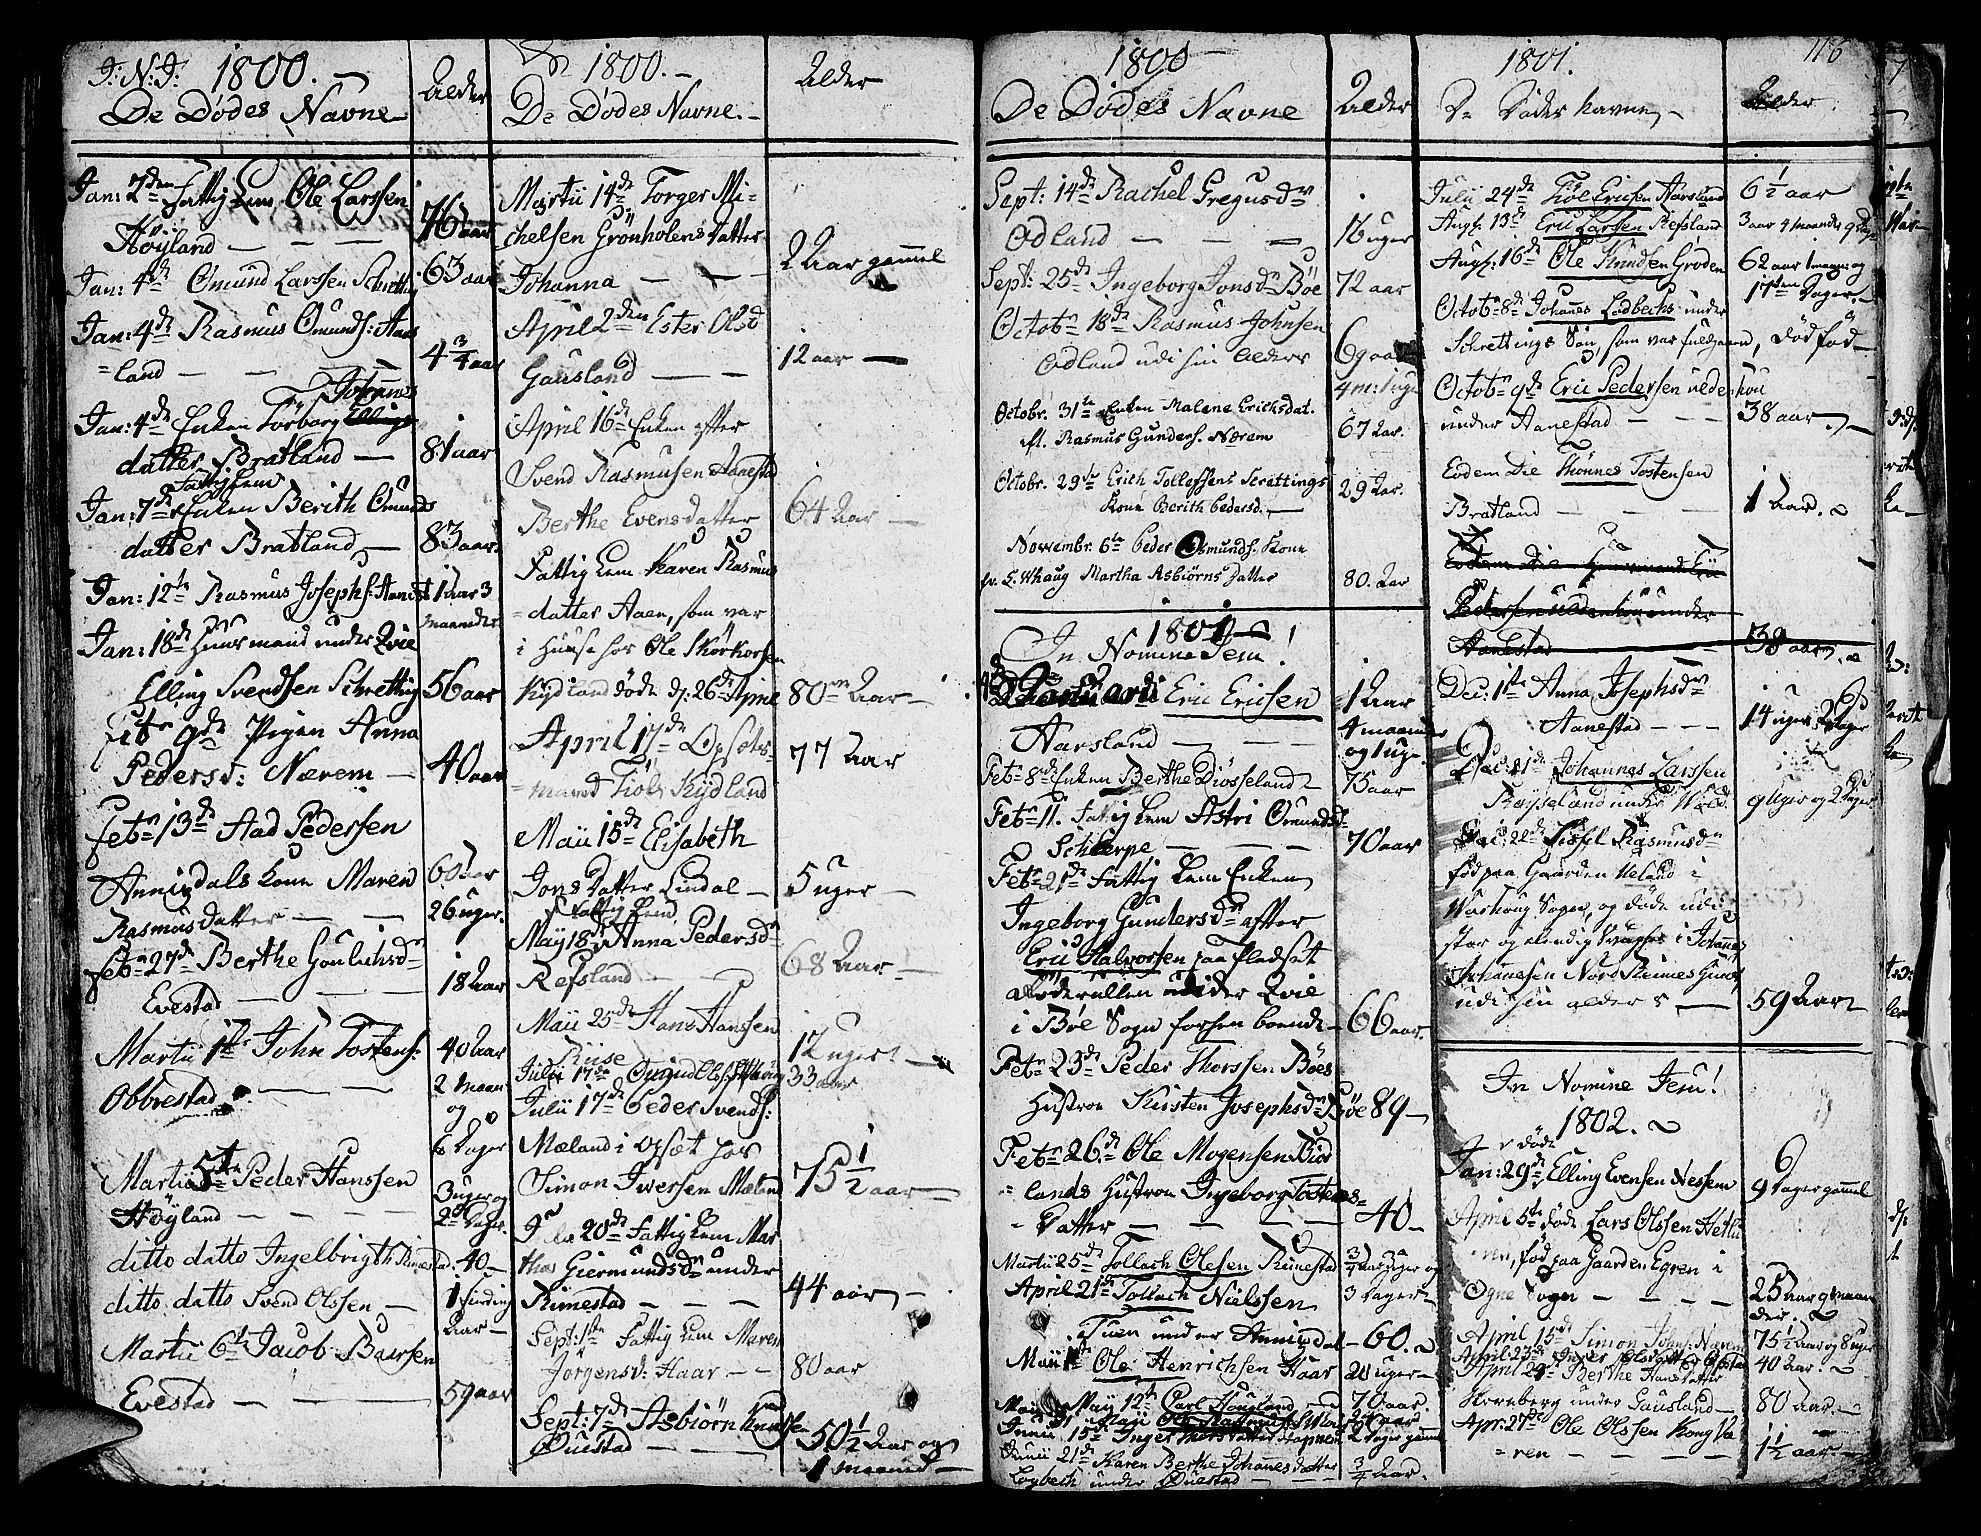 J: N: J: 1800. —
De Dödes Navne
Alder
Jan: 2den Fattig Lem Ole Larssen
Höyland — — —
76 aar
Jan: 4de Omund Larssen Schretting
63 aar
Jan: 4de Rasmus Omunds: Aars
=land — — —
4 3/4 aar
Johannes
Jan: 4de Enken Törborg
datter Bratland —
81 aar
Fattiglem
Jan: 7de Enken Berith Omunds
datter Bratland —
83 aar
Jan: 12te Rasmus Josephs: Aanest
1 Aar 3
maaneder
Jan: 18de Huusmand under Qvie
Elling Svendsen Schretting
56 aar
Febr 9de Pigen Anna
Pedersd: Nærem —
40 aar
Febr 13de Aad Pedersen
Annigdals Kone Maren
60 aar
Rasmusdatter — —
26 uger.
Febr 27de Berthe Goulichsdr
Evestad — —
18 Aar
Martii 1te John Tostens:
Obbrestad — —
40 Aar
2 Maan
og
6 Dager
Martii 5te Peder Hanssen
Höyland — — —
3 uger og
2 Dager
ditto datto Ingelbrigth Rimestad
40 —
ditto datto Svend Olssen —
1 Fierding
Aar —
Martii 6te Jacob Baarsen
Evestad — — —
59 aar
1800. —
De Dödes Navne. —
Alder
Martii 14de Torger Mi-
chelsen Grönholens Datter
Johanna — —
2 Aar gammel
April 2den Ester Olsd
Gausland — —
12 aar —
April 16de Enken efter
Svend Rasmusen Aanestad
Berthe Evensdatter
64 Aar —
Fattig Lem Karen Rasmus
=datter Aaen, som var
i Huuse hos Ole Skorkorsen
Kydland döde d: 26de Aprill
80 Aar —
April 17de Opsets=
=mand Tiöls Kydland
77 Aar
Maii 15de Elisabeth
Jons Datter Lindal —
5 uger —
Fattig Lem
May 18de Anna Pedersdr
Refsland — —
68 Aar —
Maii 25de Hans Hanssen
Riise
12 uger —
Julii 17de
33 aar
Julii 17de Peder Svends:
Mæland i Opset hos
Simon Iversen Mæland
75 1/2 aar —
20de Fattig Lem Mar
tha Giermundsdr under
Rimestad — — —
44 aar —
Sept: 1te Fattig Lem Maren
Jörgensd: Haar — —
80 aar
Sept: 7de Asbiörn Knudsen
Questad — —
50 1/2 Aar og
1 maaned —
1800 —
De Dödes Navne
Alder
Sept: 14de Rachel Gregusdr
Odland — — —
16 uger
Sept: 25de Ingeborg Jonsdr Böe
72 aar
Octobr 18de Rasmus Johnsen
Odland udi sin Alders
69 aar
4 m: 1 uge
Octobr. 31te Enken Malene Ericksdat.
eft. Rasmus Gunders. Nærem
67 Aar.
Octobr. 29de Erich Tollefsens Strettings
Kone Berith Pedersd. —
29 Aar.
Novembr. 6te Peder Osmunds. Kone
fr. S. Whaug Martha Asbiörns Datter
80. Aar
1801 —
In Nomine Jesu!
Januarii Eric Ericsen
Aarsland — — —
1 Aar
4 maaneder
og 1 uge.
Febr 8de Enken Berthe Diösseland
75 aar
Febr 11. Fattig Lem Astri Omundsd
Scherpe — — —
70 aar
Febr 21de Fattig Lem Enken
Ingeborg Gundersdr after
Eric Halvorsen paa Pladset
under Qvie
i Böe Sogn forhen boende —
66 aar.
Febr 23de Peder Thorssen Böes
Hustroe Kirsten Josephsdr Böe
89 —
Febr 26de Ole Mogensen Biör
=lands Hustroe Ingeborg Tostens=
Datter — — — —
40 —
Martii 25de Tollach Olesen Rimestad
3/4 Aar 3 uger og
3 Dager —
April 21de Tollach Nielssen
Tuen under Annigdal
60.
Maii 1te Ole Henrichsen Haar
20 uger —
Maii 12te Carl Hougland —
70 aar.
Junii 15de Inger
2 Dager gammel
Junii 21de Karen Berthe Johannes Datter
Lodbech under Questad —
3/4 Aar.
1801.
De Dödes Navne —
Alder
116
Julii 24de Tiöl Ericsen Aarsland
6 1/2 aar
Aug: 13de Eric Larssen Refsland
3 aar 4 maaneder 9 Dage
Aug: 16de Ole Knudsen Gröden
62 aar 1 maan: og
17ten Dager. —
Octobr 8de Johannes Lodbechs under
Schrettings Sön, som var fuldbaaren, Dödföd —
Octobr 9de Eric Pedersen
under Aanestad — —
38 aar. —
Eodem Die Thönnes Tostensen
Bratland — —
1 Aar.
Eodem Die Huusmand Eric
Pedersen under
Aanestad —
38 aar.
Dec: 1te Anna Josephsdr
Aanestad — —
14 uger 2 Dager
Dec: 21de Johannes Larssen
Röyseland under Wold:
9 uger og 2 Dager
Dec: 22de Sissel Rasmusdr
föd paa Gaarden Ueland i
Warhoug Sogn, og döde udi
stor og elendig Svaghed i Johannes
Johanesen Nord Reimes Huus,
udi sin alders —
59 Aar
In Nomine Jesu!
1802.
döde
Jan: 29de Elling Evensen Nessem
9 Dager gammel
April 5te döde Lars Olssen Hetlu
ren, föd paa Gaarden Egren i
Ogne Sogn — — — —
25 aar 9 maan
der. —
April 15de Simon Johns: Nærem
75 1/2 Aar og 8 uger
April: 23de Inger
40 Aar.
April 29de Berthe Hansdatter
Horeberg under Gausland —
80 aar —
Apr: 27de Ole Olssen Kong Va
=ren — — —
1 1/2 aar —